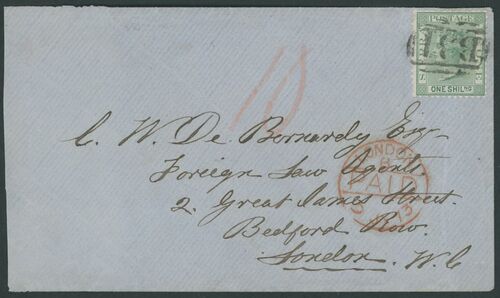 POSTAGE
SIERRA
B31
ONE SHILNG
10
C. W. De Bernardy Esq
Foreign Law Agents
2. Great James Street.
Bedford Row.
London. W.C
LONDON
8
PAID
73